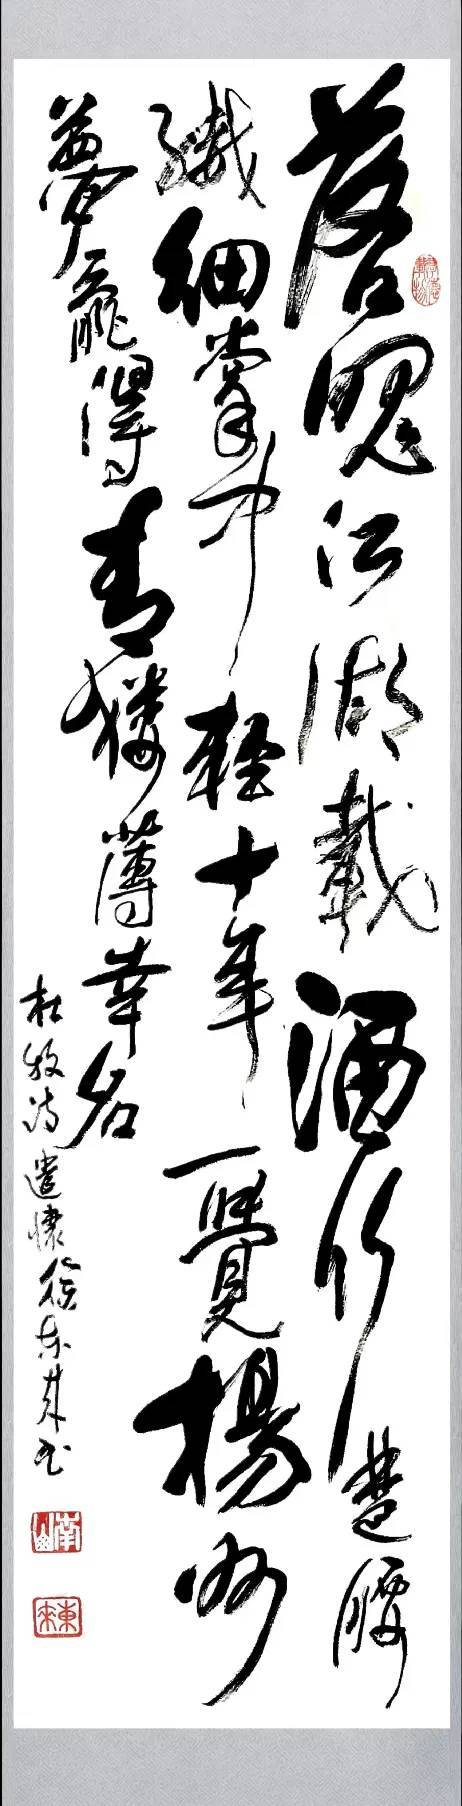 落魄江湖載酒行楚腰
纖細掌中輕十年一覺揚州
夢贏得青樓薄幸名
杜牧詩遣懷徐东来书
南山
東來